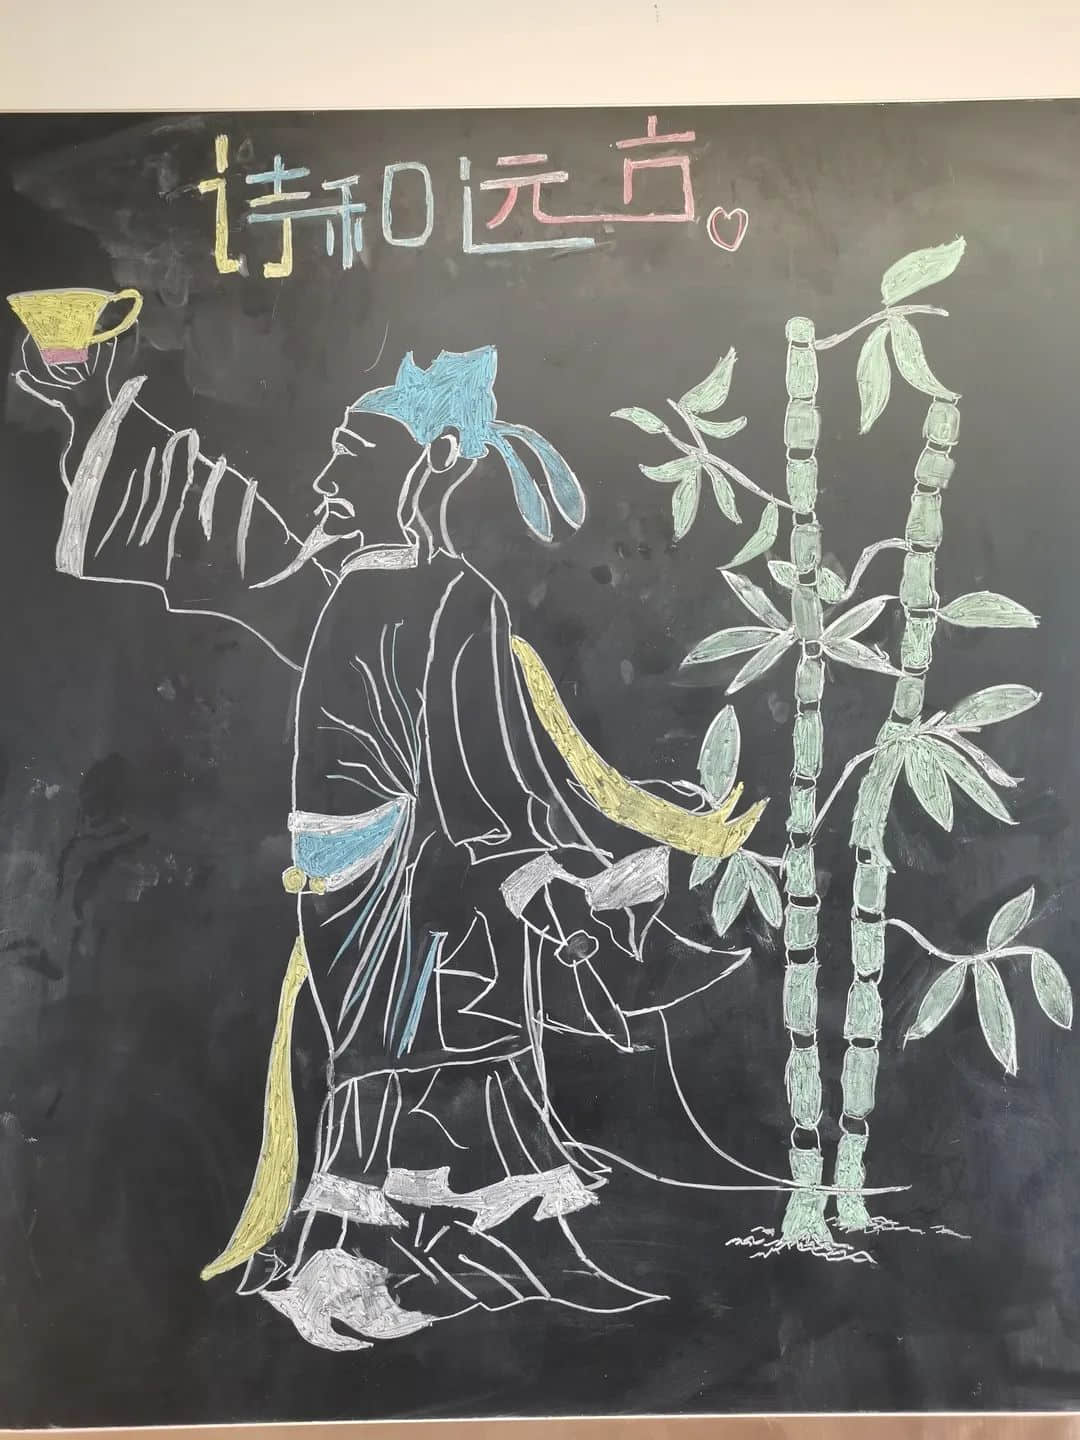 诗和远方